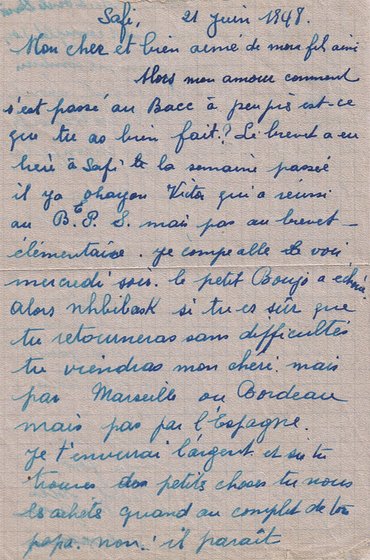 Safi, 21 juin 1948.
Mon cher et bien aimé de mon fils ainé
Alors mon amour comment
s'est passé au Bacc à peu près est-ce
que tu as bien fait? Le brevet a eu
lieu à Safi la semaine passée
il y a ohayon Victor qui a réussi
au B.E.P.S. mais pas au brevet
élémentaire. je compte alle le voir
mercredi soir. le petit Boujo a échoué.
Alors nhbibask si tu es sûr que
tu retourneras sans difficultés
tu viendras mon chéri mais
par Marseille ou Bordeau
mais pas par l'Espagne.
je t'enverrai l'argent et si tu
trouves des petits choses tu nous
les achèts quand au complet de ton
papa. non! il paraît